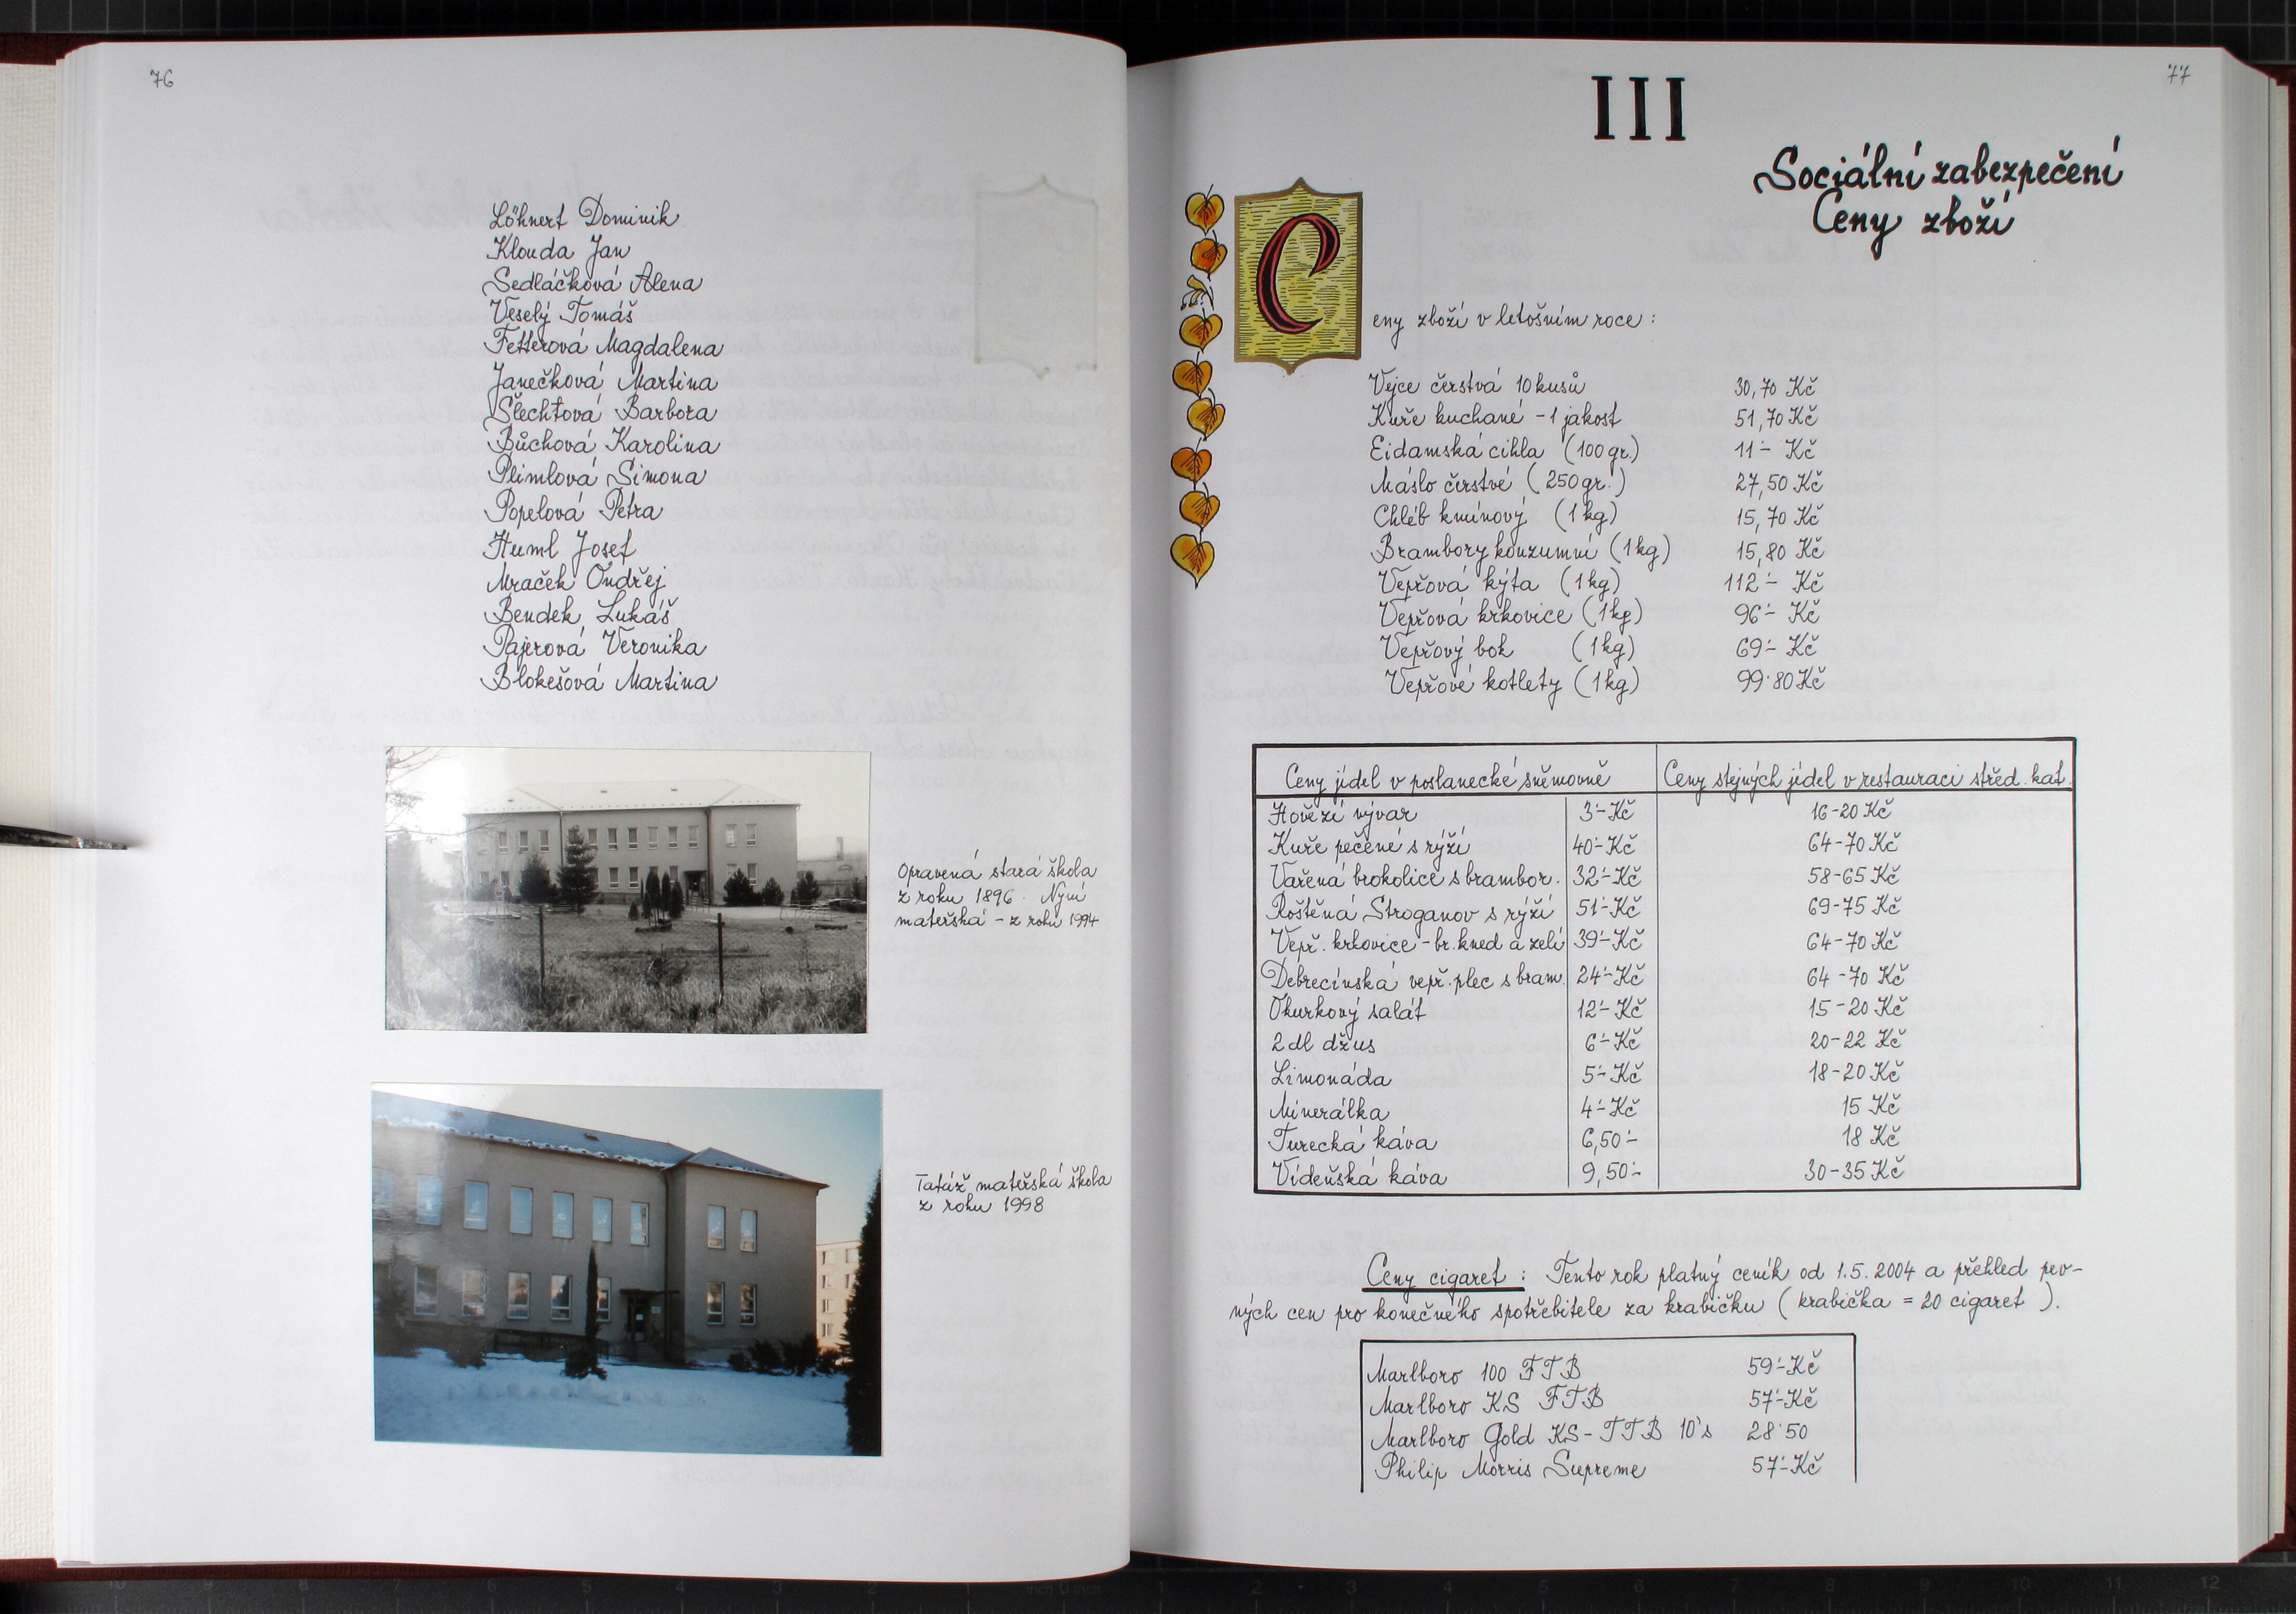 76
Löhnert Dominik
Klouda Jan
Sedláčková Alena
Veselý Tomáš
Fetterová Magdalena
Janečková Martina
Šlechtová Barbora
Bůchová Karolina
Plimlová Simona
Popelová Petra
Huml Josef
Mraček Ondřej
Bendek Lukáš
Pajerová Veronika
Blokešová Martina
Opravená stará škola
z roku 1896. Nyní
mateřská - z roku 1994
Tatáž mateřská škola
z roku 1998
77
III
Sociální zabezpečení
Ceny zboží
Ceny zboží v letošním roce:
Vejce čerstvá 10 kusů 30,70 Kč
Kuře kuchané - 1 jakost 51,70 Kč
Eidamská cihla (100 gr.) 11'- Kč
Máslo čerstvé (250 gr.) 27,50 Kč
Chléb kmínový (1 kg) 15,70 Kč
Brambory konzumní (1 kg) 15,80 Kč
Vepřová kýta (1 kg) 112'- Kč
Vepřová krkovice (1 kg) 96'- Kč
Vepřový bok (1 kg) 69'- Kč
Vepřové kotlety (1 kg) 99'80 Kč
Ceny jídel v poslanecké sněmovně Ceny stejných jídel v restauraci střed. kat.
Hovězí vývar 3'- Kč 16-20 Kč
Kuře pečené s rýží 40'- Kč 64-70 Kč
Vařená brokolice s brambor. 32'- Kč 58-65 Kč
Roštěná Stroganov s rýží 51'- Kč 69-75 Kč
Vepř. krkovice - br. kned a zelí 39'- Kč 64-70 Kč
Debrecínská vepř. plec s bram. 24'- Kč 64-70 Kč
Okurkový salát 12'- Kč 15-20 Kč
2 dl džus 6'- Kč 20-22 Kč
Limonáda 5'- Kč 18-20 Kč
Minerálka 4'- Kč 15 Kč
Turecká káva 6,50'- 18 Kč
Vídeňská káva 9,50'- 30-35 Kč
Ceny cigaret: Tento rok platný ceník od 1.5.2004 a přehled pev-
ných cen pro konečného spotřebitele za krabičku (krabička = 20 cigaret).
Marlboro 100 FTB 59'- Kč
Marlboro KS FTB 57'- Kč
Marlboro Gold KS - FTB 10's 28'50
Philip Morris Supreme 57'- Kč